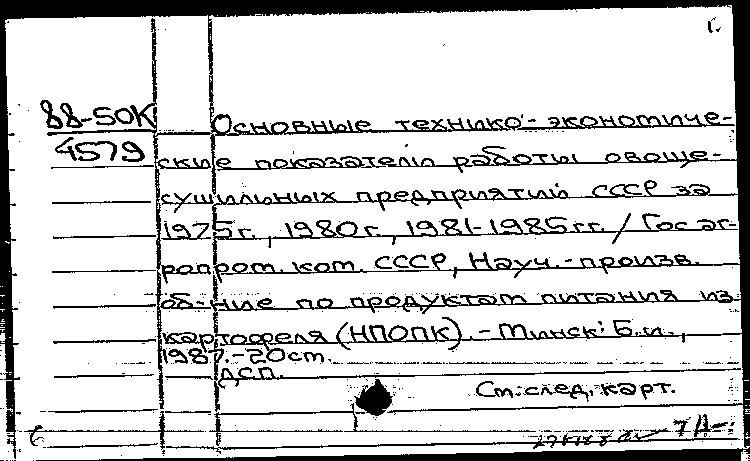 г.
88-50К
4579
Основные технико-экономиче-
ские показатели работы овоще-
сушильных предприятий СССР за
1975г., 1980г., 1981-1985гг. / Гос аг-
ропром. ком. СССР, Науч.-произв.
об-ние по продуктам питания из
картофеля (НПОПК). - Минск: Б.и.,
1987. - 20 ст.
ДСП.
См. след. карт.